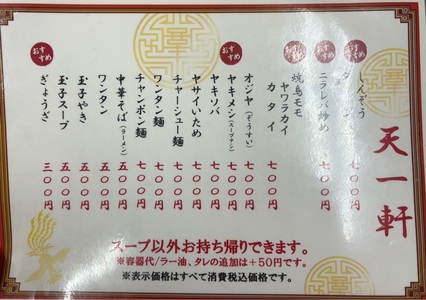 天一軒
おすすめ
しんぞう
タン
七〇〇円
おすすめ
ニラレバ炒め
七〇〇円
おすすめ
焼鳥モモ
ヤワラカイ
カタイ
七〇〇円
オジヤ(ぞうすい)
七〇〇円
おすすめ
ヤキメシ(スープナシ)
七〇〇円
ヤキソバ
七〇〇円
ヤサイいため
七〇〇円
チャーシュー麺
七〇〇円
ワンタン麺
七〇〇円
チャンポン麺
七〇〇円
中華そば(ラーメン)
五〇〇円
ワンタン
五〇〇円
玉子やき
五〇〇円
玉子スープ
五〇〇円
おすすめ
ぎょうざ
三〇〇円
スープ以外お持ち帰りできます。
※容器代/ラー油、タレの追加は+50円です。
※表示価格はすべて消費税込価格です。